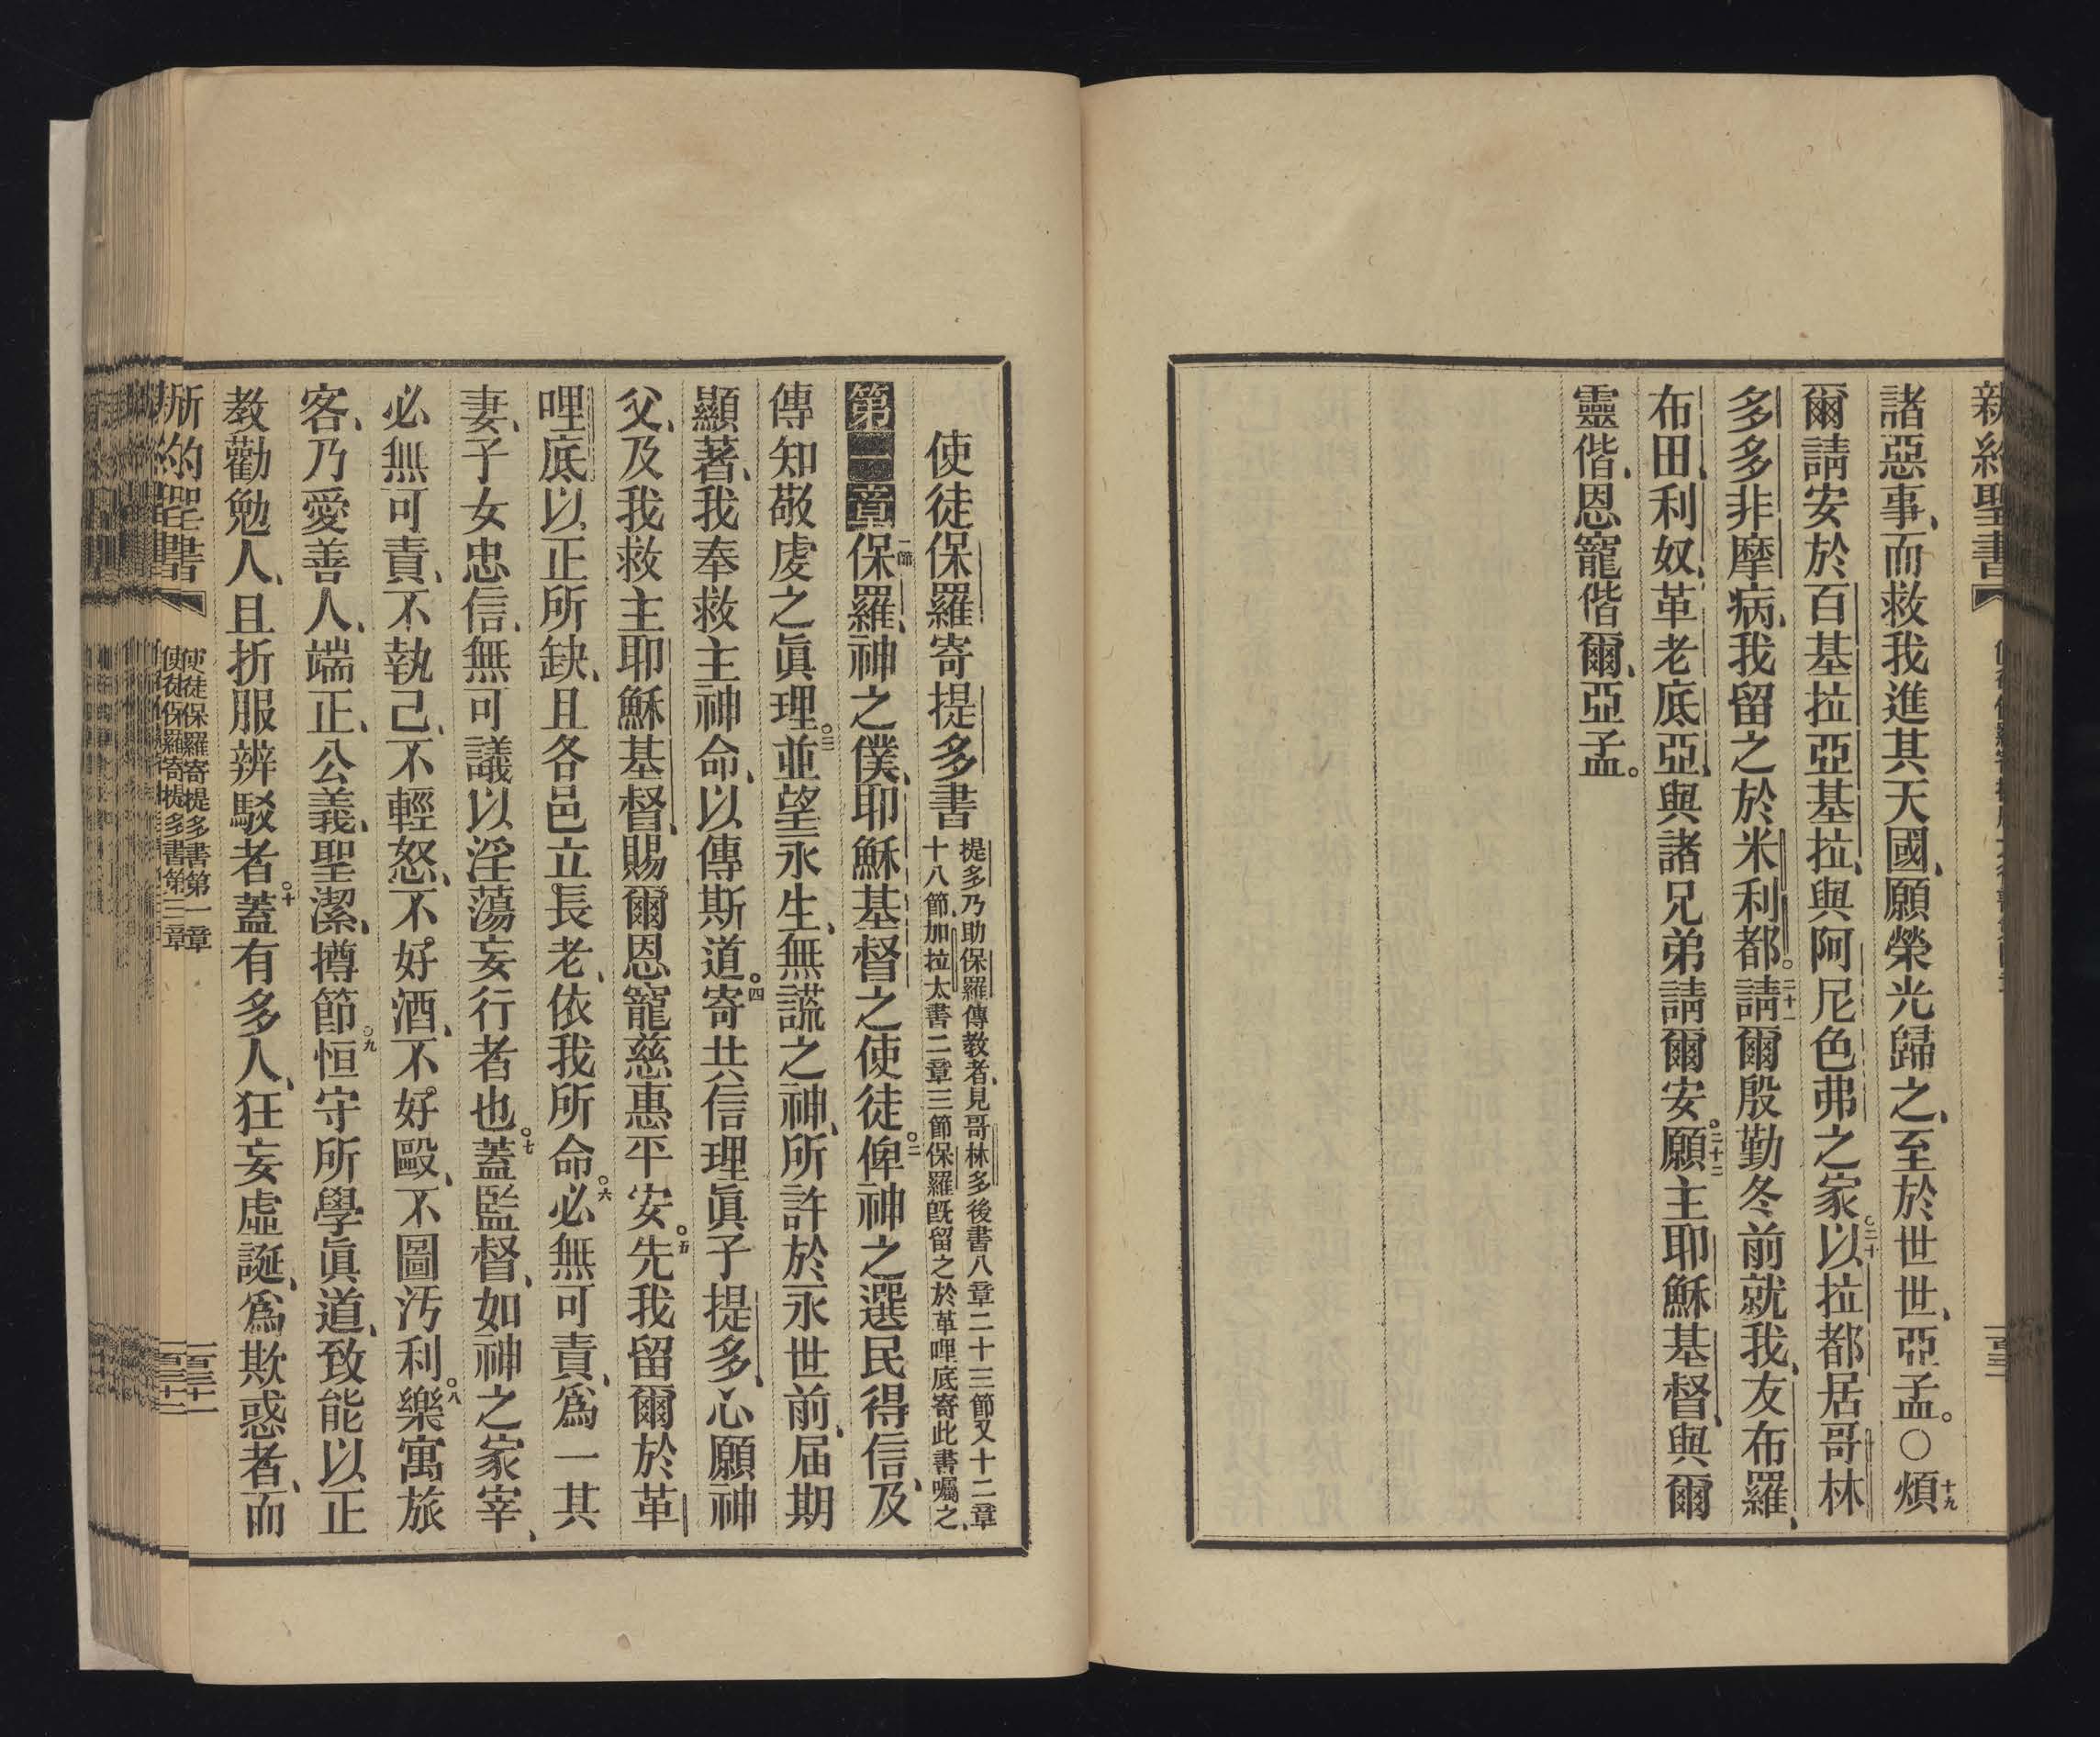 新約聖書
諸惡事、而救我進其天國、願榮光歸之、至於世世、亞孟。〇十九煩
爾請安於百基拉亞基拉、與阿尼色弗之家。二十以拉都居哥林
多多非摩病、我留之於米利都。二十一請爾殷勤冬前就我、友布羅、
布田、利奴、革老底亞、與諸兄弟請爾安。二十二願主耶穌基督、與爾
靈偕、恩寵偕爾、亞孟。
使徒保羅寄提多書 提多乃助保羅傳教者、見哥林多後書八章二十三節又十二章
十八節、加拉太書二章三節保羅旣留之於革哩底寄此書囑之、
第一章一節保羅、神之僕、耶穌基督之使徒。二俾神之選民得信、及
傳知敬虔之眞理。三並望永生、無謊之神、所許於永世前、届期
顯著、我奉救主神命、以傳斯道。四寄共信理眞子提多、心願神
父、及我救主耶穌基督、賜爾恩寵慈惠平安。五先我留爾於革
哩底、以正所缺、且各邑立長老、依我所命。六必無可責、爲一其
妻、子女忠信、無可議以淫蕩妄行者也。七蓋監督、如神之家宰、
必無可責、不執己、不輕怒、不好酒、不好毆、不圖汚利。八樂寓旅
客、乃愛善人、端正、公義、聖潔、撙節。九恒守所學眞道、致能以正
教勸勉人、且折服辨駁者。十蓋有多人、狂妄虛誕、爲欺惑者、而
新約聖書 使徒保羅寄提多書第一章 一百三十一
使徒保羅寄提多書第三章